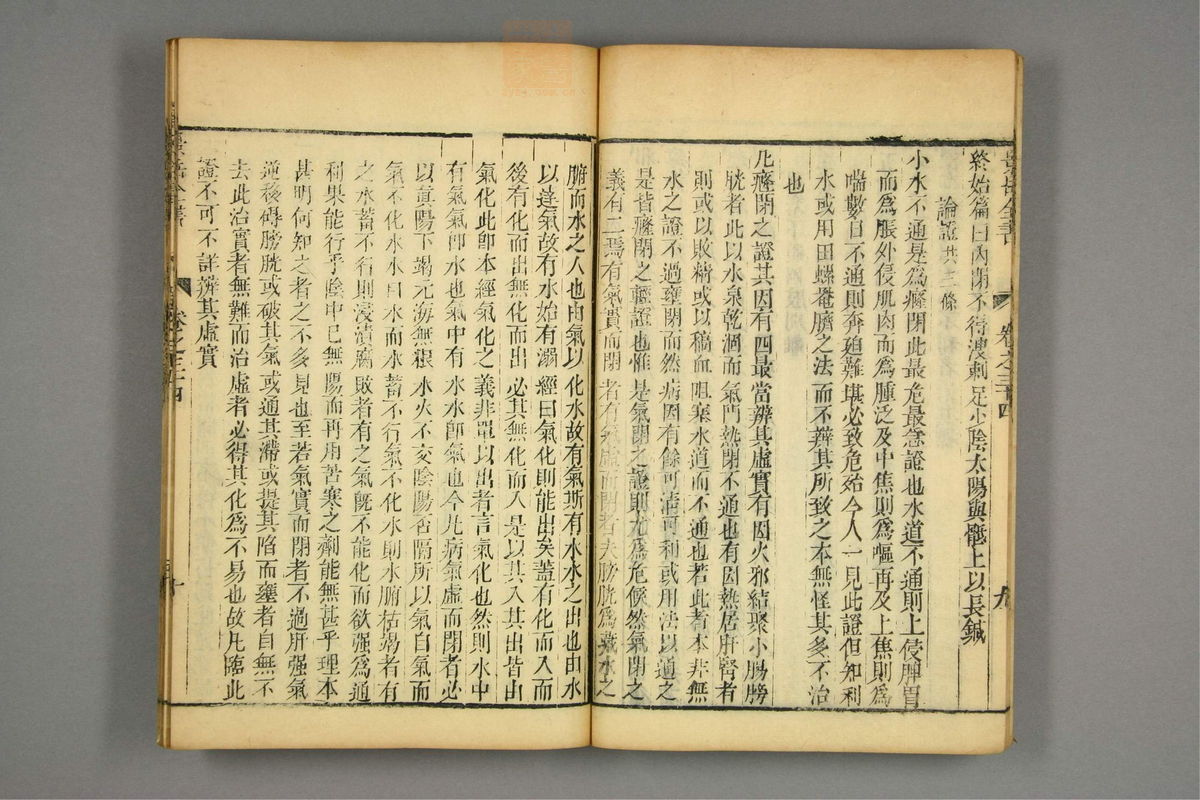 景岳全書
卷之三十四
九
終始篇曰內閉不得溲刺足少陰太陽與骶上以長鍼
論證共三條
小水不通是為癃閉此最危最急證也水道不通則上侵脾胃
而為脹外侵肌肉而為腫泛及中焦則為嘔再及上焦則為
喘數日不通則奔迫難堪必致危殆今人一見此證但知利
水或用田螺罨臍之法而不辨其所致之本無怪其多不治
也
凡癃閉之證其因有四最當辨其虛實有因火邪結聚小腸膀
胱者此以水泉乾涸而氣門熱閉不通也有因熱居肝腎者
則或以敗精或以槁血阻塞水道而不通也若此者本非無
水之證不過壅閉而然病因有餘可清可利或用法以通之
是皆癃閉之輕證也惟是氣閉之證則尤為危候然氣閉之
義有二焉有氣實而閉者有氣虛而閉者夫膀胱為藏水之
腑而水之入也由氣以化水故有氣斯有水水之出也由水
以達氣故有水始有溺經曰氣化則能出矣蓋有化而入而
後有化而出無化而出必其無化而入是以其入其出皆由
氣化此即本經氣化之義非單以出者言氣化也然則水中
有氣氣即水也氣中有水水即氣也今凡病氣虛而閉者必
以真陽下竭元海無根水火不交陰陽否隔所以氣自氣而
氣不化水水自水而水蓄不行氣不化水則水腑枯竭者有
之水蓄不行則浸漬腐敗者有之氣既不能化而欲强為通
利果能行乎陰中已無陽而再用苦寒之劑能無甚乎理本
甚明何知之者之不多見也至若氣實而閉者不過肝强氣
逆移碍膀胱或破其氣或通其滯或提其陷而壅者自無不
去此治實者無難而治虛者必得其化為不易也故凡臨此
證不可不詳辨其虛實
景岳全書
卷之三十四
十